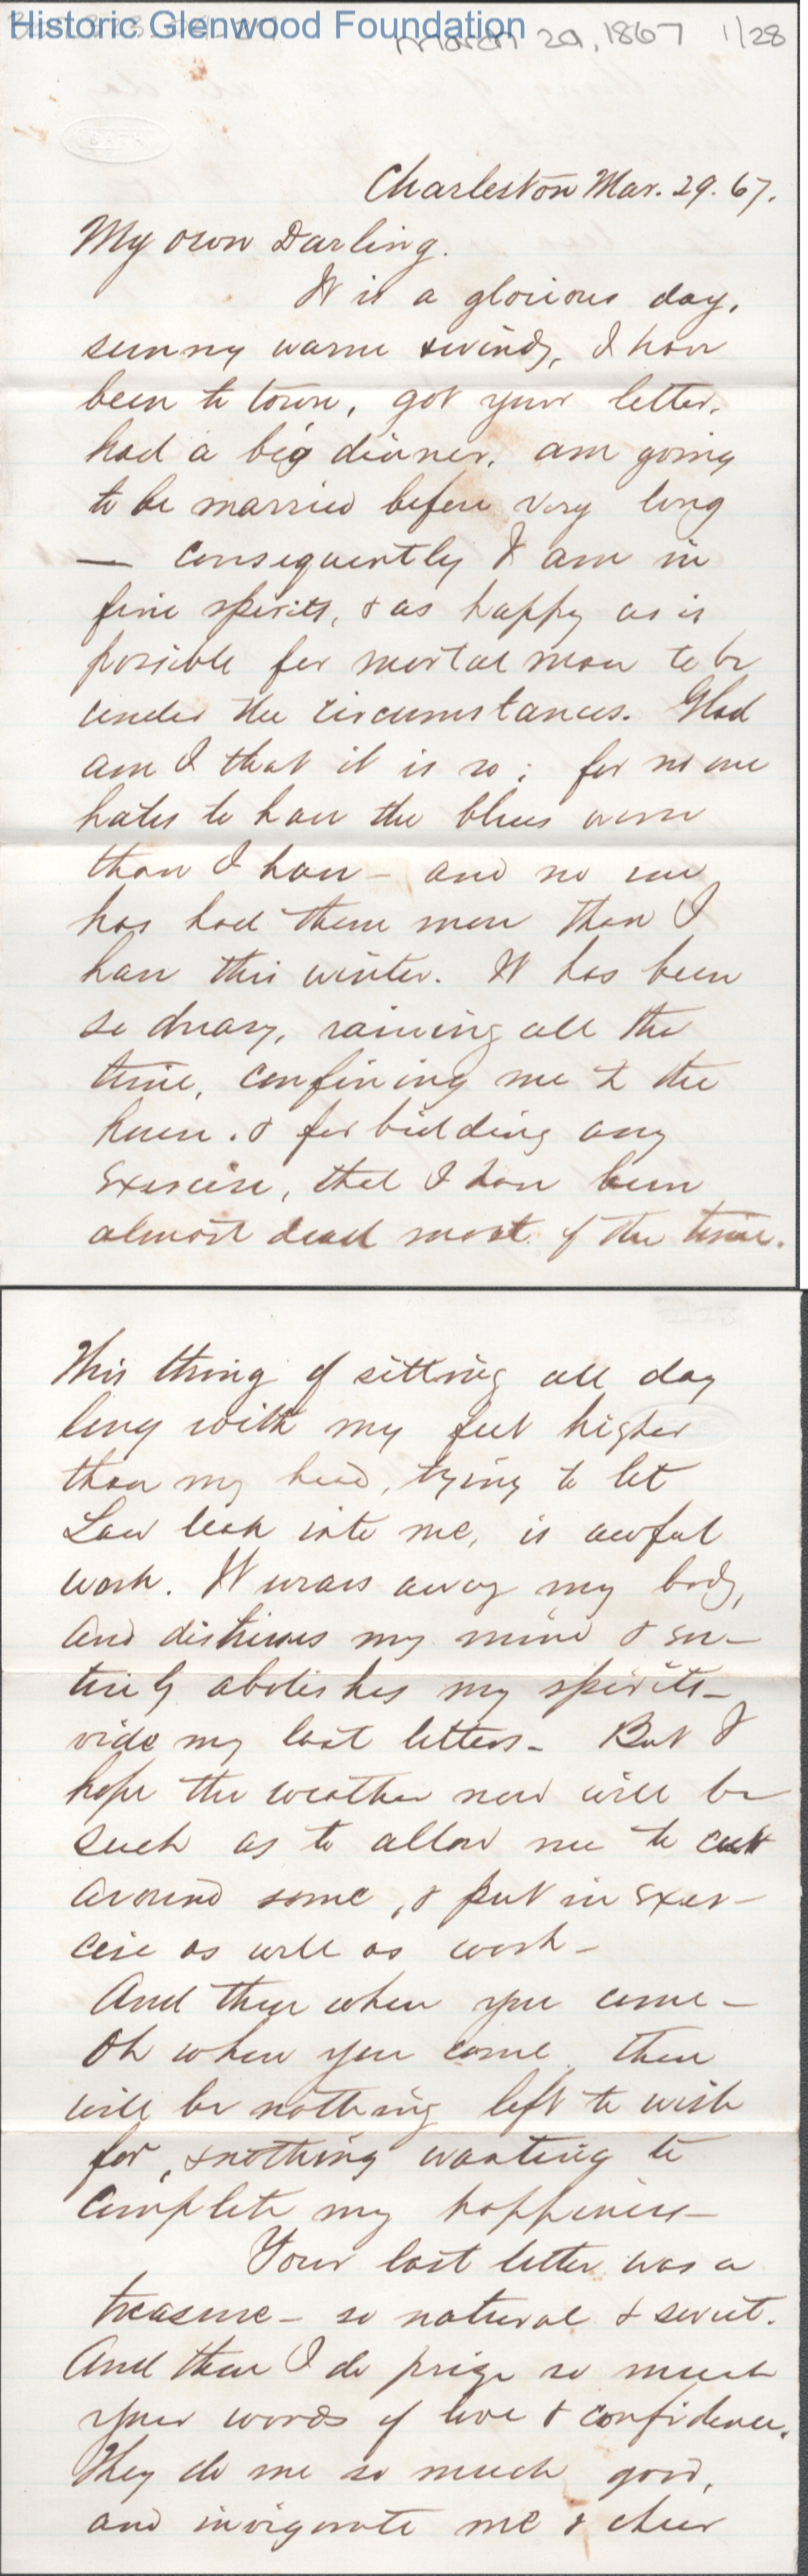 Historic Glenwood Foundation
March 29, 1867 1/28
Charleston Mar. 29. 67.
My own Darling.
It is a glorious day,
sunny warm & windy, I have
been to town, got your letter,
had a big dinner, am going
to be married before very long
— consequently I am in
fine spirits, & as happy as is
possible for mortal man to be
under the circumstances. Glad
am I that it is so; for no one
hates to have the blues worse
than I have – and no one
has had them more than I
have this winter. It has been
so dreary, raining all the
time, confining me to the
house. & forbidding any
exercise, that I have been
almost dead most of the time.
This thing of sitting all day
long with my feet higher
than my head, trying to let
Law leak into me, is awful
work. It wears away my body,
and distresses my mind & en-
tirely abolishes my spirits –
vide my last letters – But I
hope the weather now will be
such as to allow me to cut
around some, & put in exer-
cise as well as work –
And then when you come –
Oh when you come there
will be nothing left to wish
for, & nothing wanting to
complete my happiness –
Your last letter was a
treasure – so natural & sweet.
And then I do prize so much
your words of love & confidence.
They do me so much good,
and invigorate me & cheer